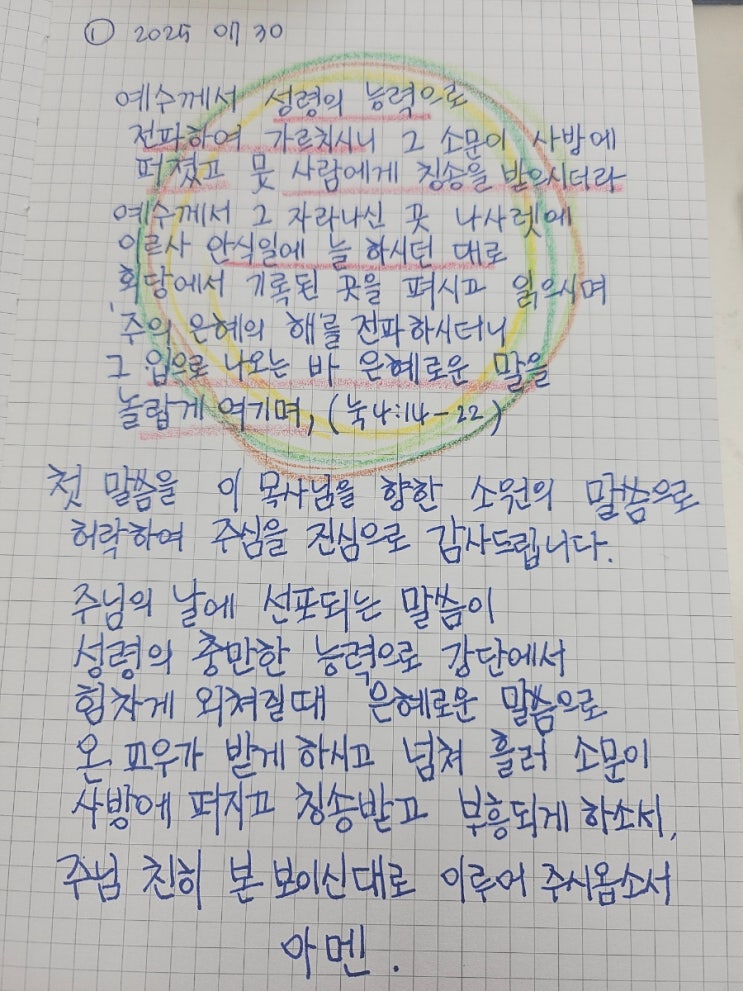 ① 2025 07 30
예수께서 성령의 능력으로
전파하여 가르치시니 그 소문이 사방에
퍼졌고 뭇 사람에게 칭송을 받으시더라
예수께서 그 자라나신 곳 나사렛에
이르사 안식일에 늘 하시던 대로
회당에서 기록된 곳을 펴시고 읽으시며
'주의 은혜의 해'를 전파하시더니
그 입으로 나오는 바 은혜로운 말을
놀랍게 여기며, (눅4:14-22)
첫 말씀을 이 목사님을 향한 소원의 말씀으로
허락하여 주심을 진심으로 감사드립니다.
주님의 날에 선포되는 말씀이
성령의 충만한 능력으로 강단에서
힘차게 외쳐질때 '은혜로운 말씀으로
온 교우가 받게 하시고 넘쳐 흘러 소문이
사방에 퍼지고 칭송받고 부흥되게 하소서,
주님 친히 본 보이신대로 이루어 주시옵소서
아멘.